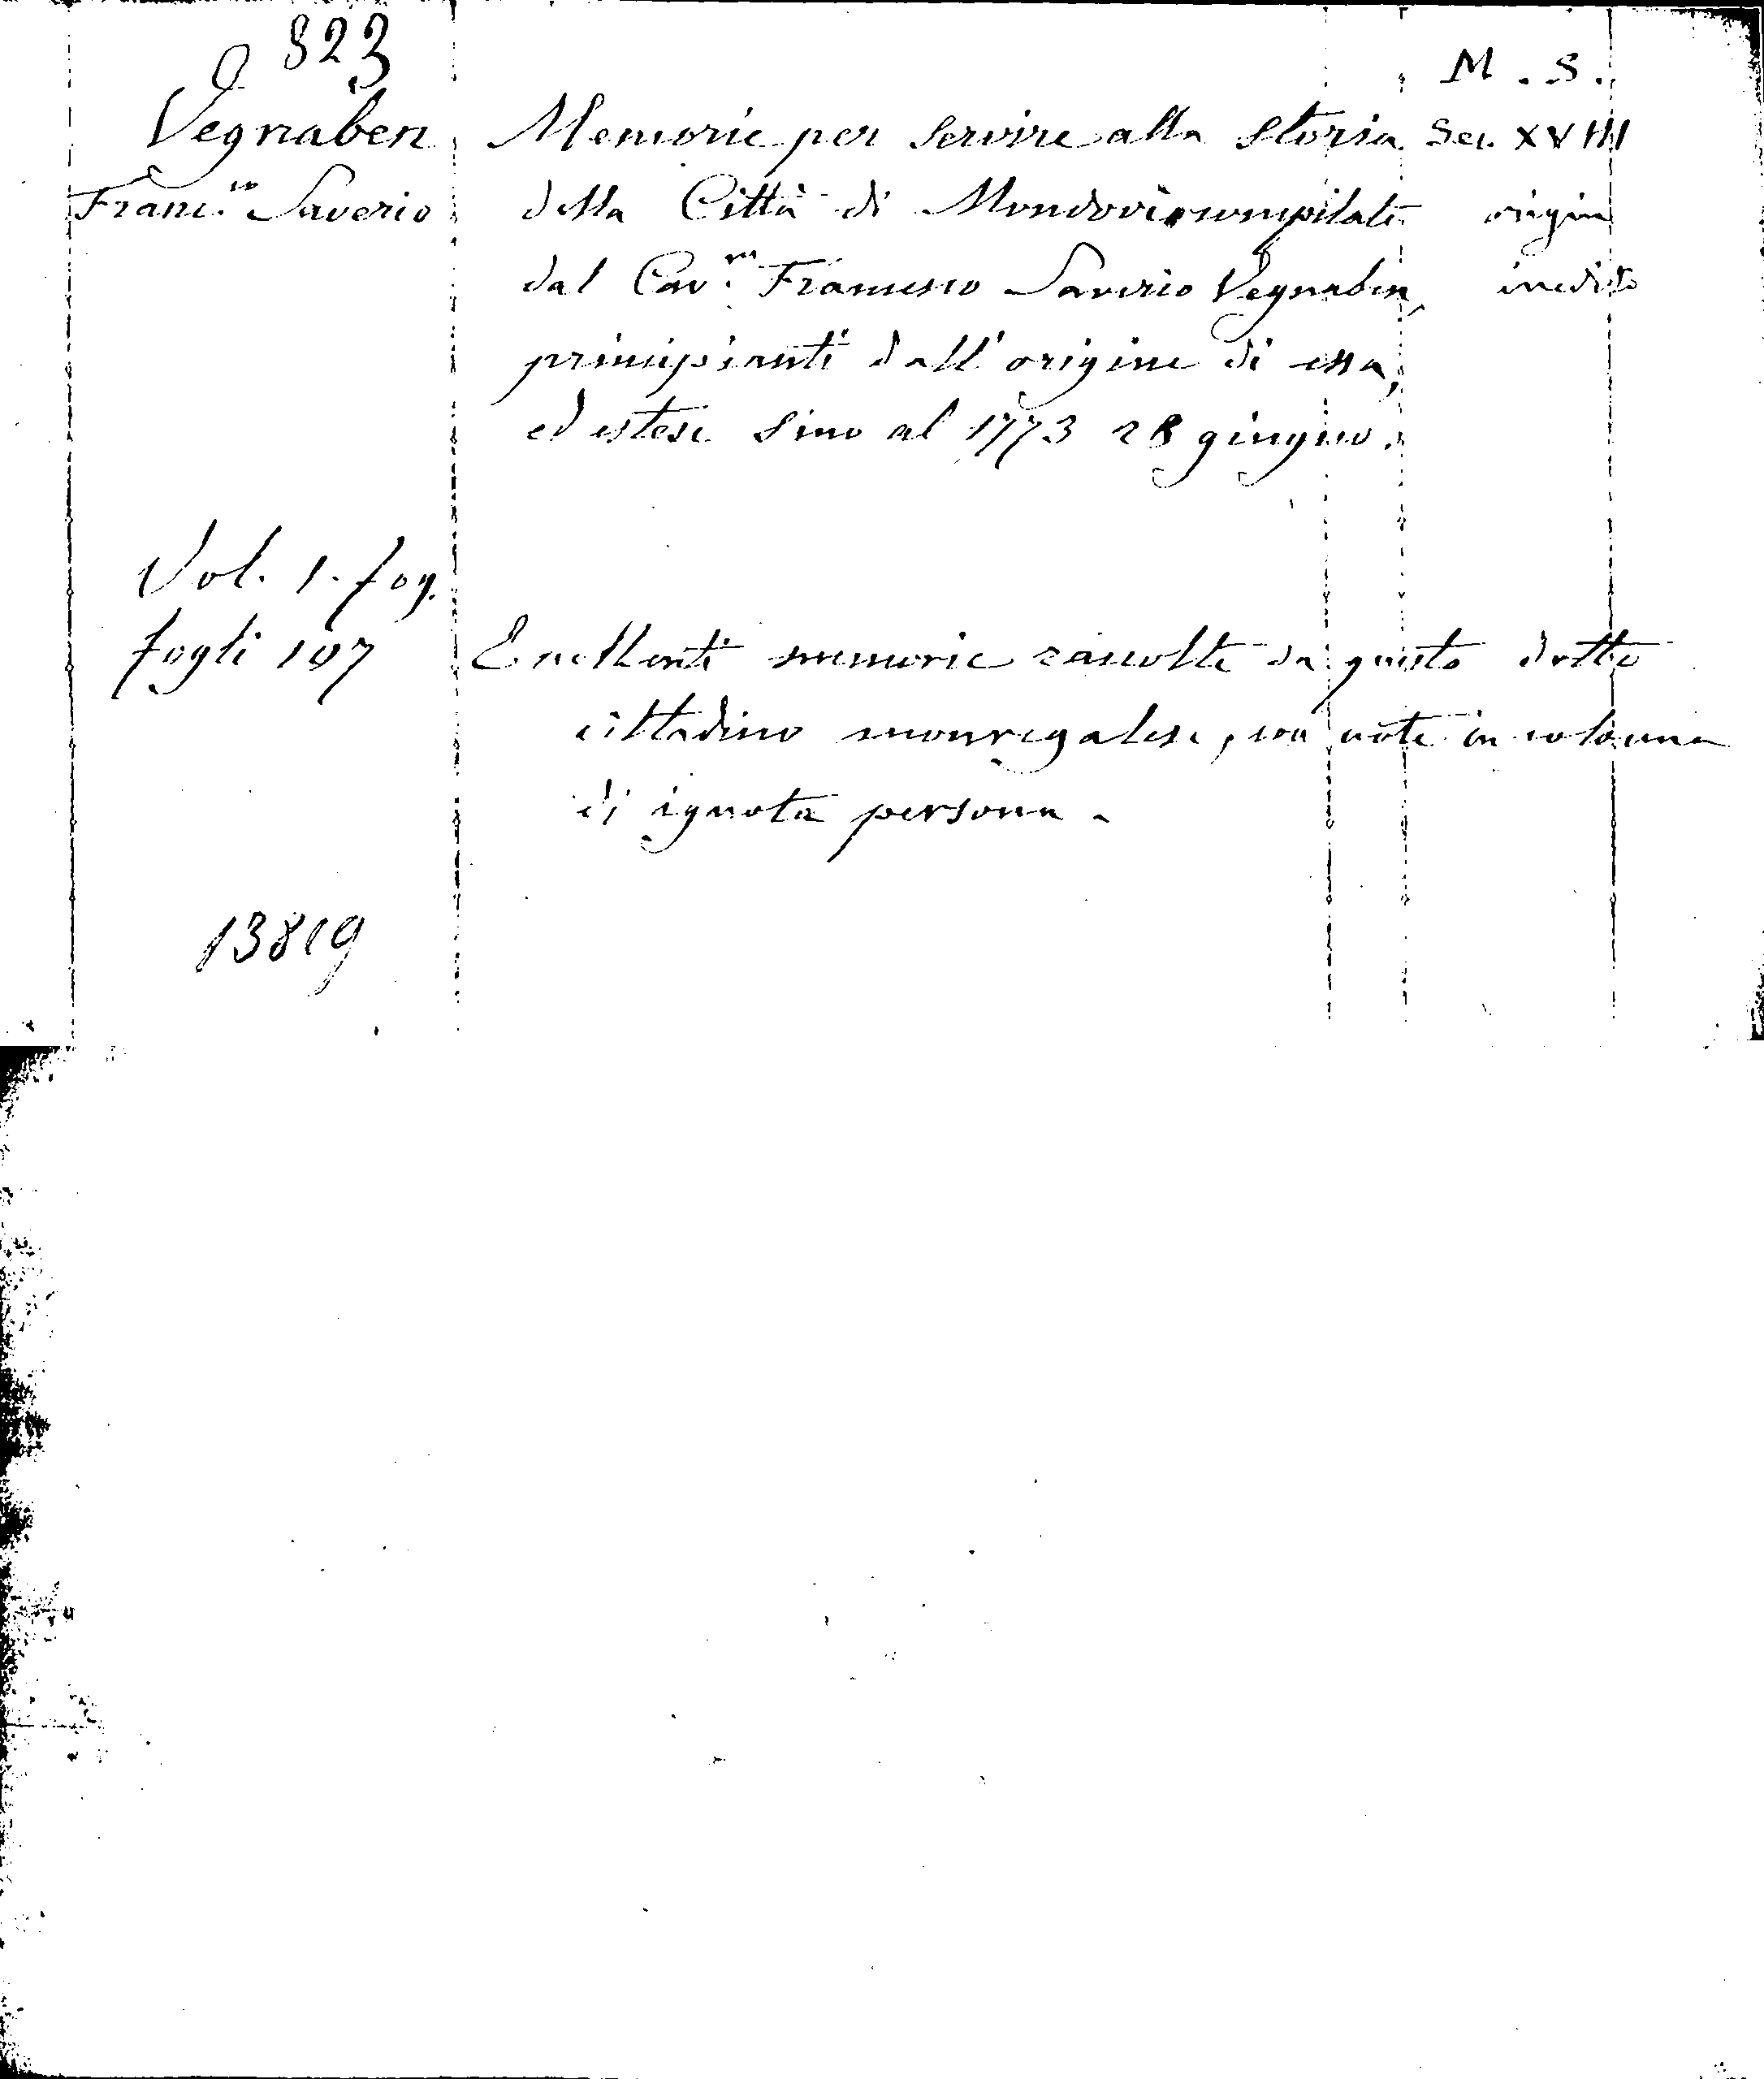 823
M. S.
Vegnaben Memorie per servire alla Storia Sec. XVIII
Franc.co Saverio della Città di Mondovì compilate origin
dal Cav.re Francesco Saverio Vegnaben, inedito
principianti dall'origine di essa,
ed estese sino al 1773 28 giugno.
Vol. 1. fog.
fogli 107 Eccellenti memorie raccolte da questo dotto
cittadino monregalese, con note in colonna
di ignota persona.
13819